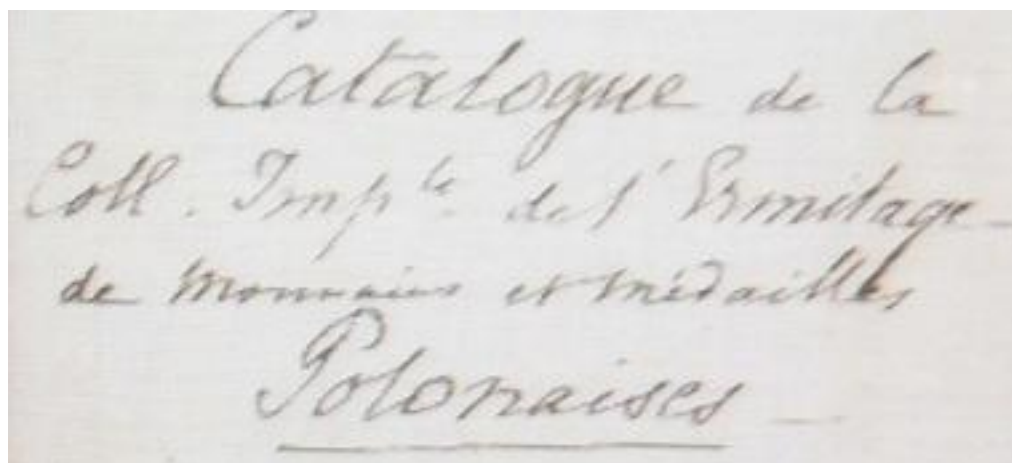 Catalogue de la
Coll. Imp.le de l'Ermitage
de monnaies et médailles
Polonaises